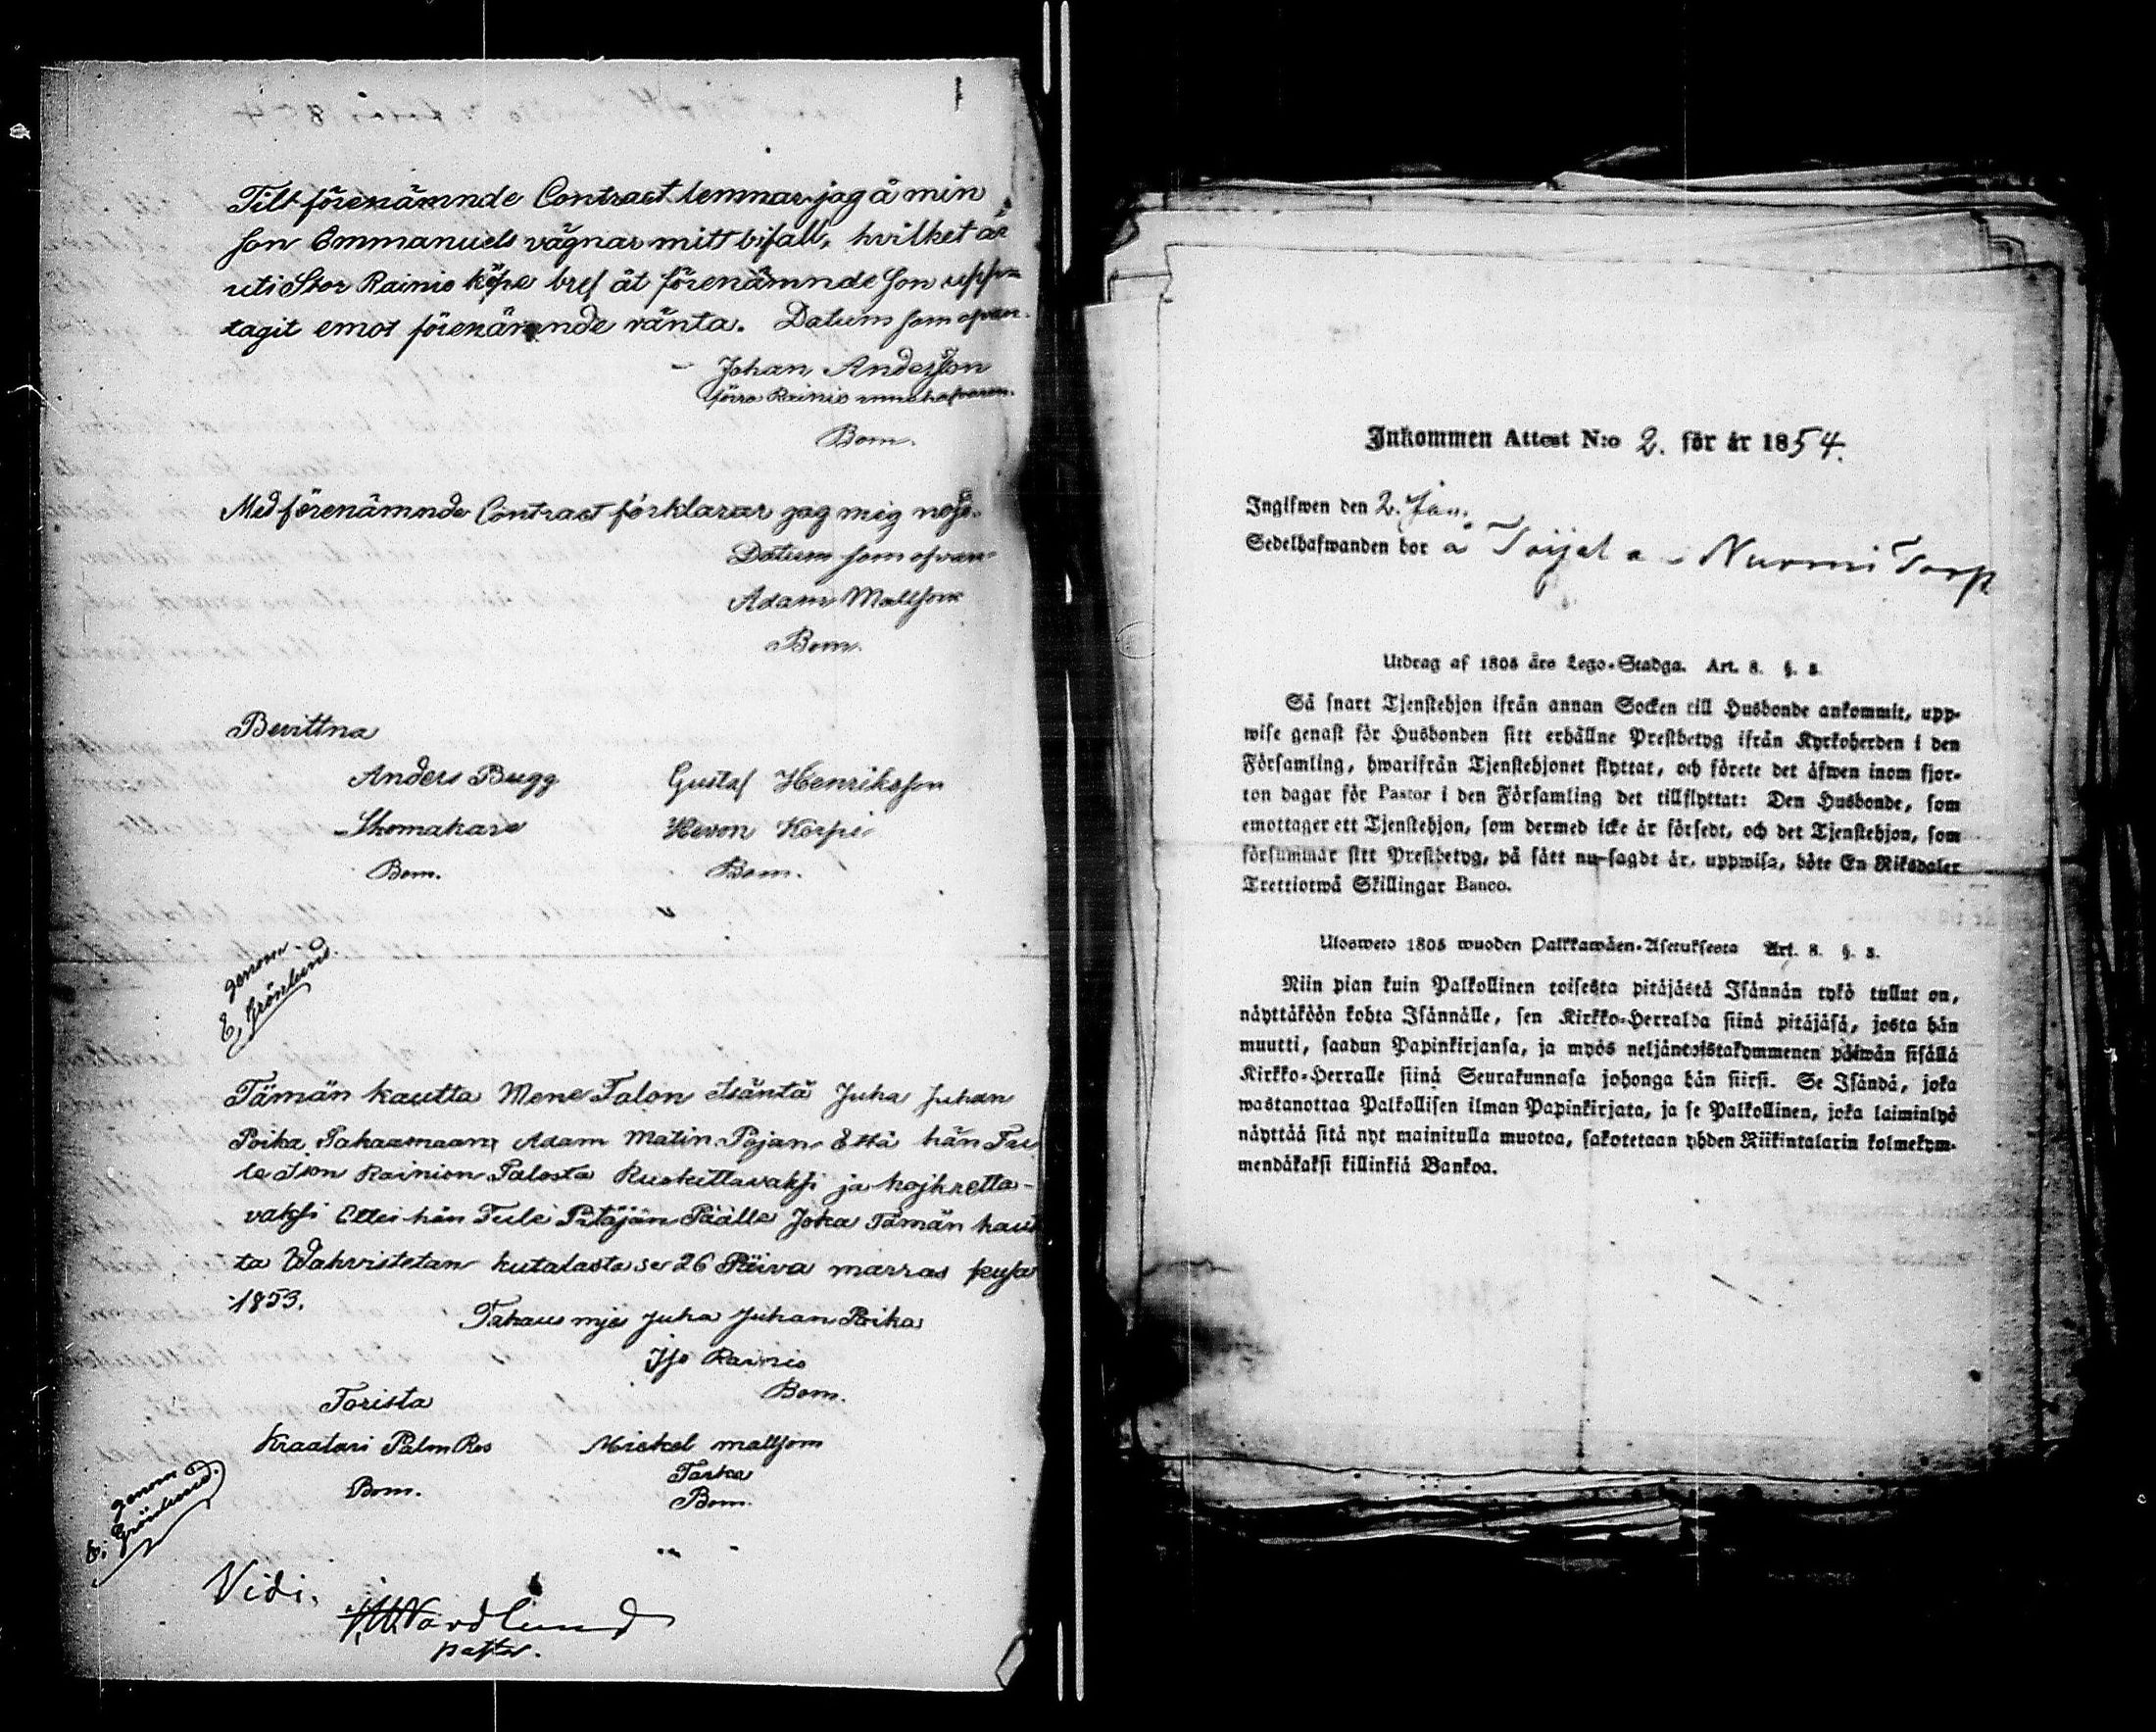 Till förenämnde Contract lemnar jag å min
Son Emmanuels vägnar mitt bifall, hvilket är
uti Stor Rainio köpe bref åt förenämnde Son upp-
tagit emot förenämnde vänta. Datum som ofvan.
Johan Andersson
förra Rainio innehafvaren.
Bom.
Med förenämnde Contract förklarar jag mig nöjd.
Datum som ofvan
Adam Mattsson
Bom.
Bevittna
Anders Bugg Gustaf Henriksson
Skomakare Hevon Korpi
Bom. Bom.
genom
E. Grönlund.
Tämän kautta Mene Talon Isäntä Juha Juhan
Poika Takaamaan, Adam Matin Pojan Että hän Tu
le Ison Rainion Talosta Ruokittavaksi ja
vaksi Ettei hän Tule Pitäjän Päälle Joka Tämän kaut
ta Wahvistetan kutalasta se 26 Päiva marras kusa
1853.
Takaus mjes Juha Juhan Poika
Iso Rainio
Bom.
Torista
Kraatari Palm Ros Mickel mattsom
Bom. Taska
Bom.
genom
E. Grönlund.
Vidi.
Nordlund
pastor.
Inkommen Attest N:o 2. för år 1854.
Ingifwen den 2. Jan.
Sedelhafwanden bor å Toijala Nurmi Torp
Utdrag af 1805 års Lego-Stadga. Art. 8. §. 3.
Så snart Tjenstehjon ifrån annan Socken till Husbonde ankommit, upp-
wise genast för Husbonden sitt erhållne Prestbetyg ifrån Kyrkoherden i den
Församling, hwarifrån Tjenstehjonet flyttat, och förete det äfwen inom fjor-
ton dagar för Pastor i den Församling det tillflyttat: Den Husbonde, som
emottager ett Tjenstehjon, som dermed icke är försedt, och det Tjenstehjon, som
försummar sitt Prestbetyg, på sätt nu sagdt är, uppwisa, böte En Riksdaler
Trettiotwå Skillingar Banco.
Ulosweto 1805 wuoden Palkkawäen-Asetuksesta Art. 8. §. 3.
Niin pian kuin Palkollinen toisesta pitäjästä Isännän tykö tullut on,
näyttäköön kohta Isännälle, sen Kirkko-Herralda siinä pitäjäsä, josta hän
muutti, saadun Papinkirjansa, ja myös neljäntoistakymmenen päiwän sisällä
Kirkko-Herralle siinä Seurakunnasa johonga hän siirsi. Se Isändä, joka
wastanottaa Palkollisen ilman Papinkirjata, ja se Palkollinen, joka laiminlyö
näyttää sitä nyt mainitulla muotoa, sakotetaan yhden Riikintalarin kolmekym-
mendäkaksi killinkiä Bankoa.